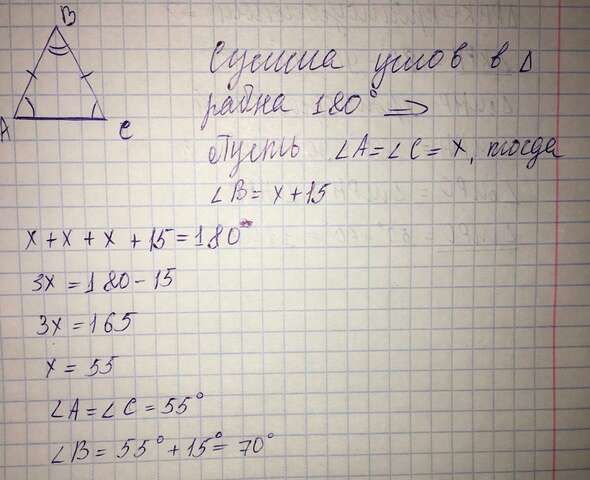 B
A
C
Сумма углов в Δ
равна 180° ⇒
Пусть ∠A=∠C=x, тогда
∠B=x+15
x+x+x+15=180
3x=180-15
3x=165
x=55
∠A=∠C=55°
∠B=55°+15°=70°